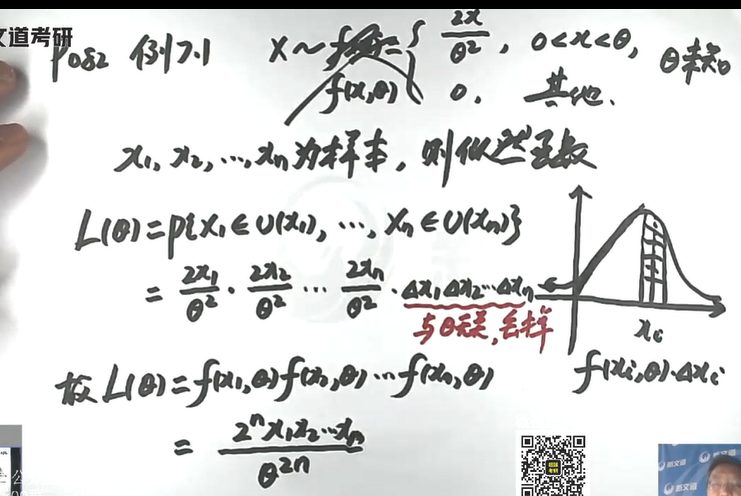 文道考研
P082 例7.1 X~f(x,θ)={ 2x/θ², 0<x<θ, θ未知
0, 其他.
x₁, x₂, …, xₙ为样本, 则似然函数
L(θ)=P{X₁∈U(x₁), …, Xₙ∈U(xₙ)}
= 2x₁/θ² · 2x₂/θ² … 2xₙ/θ² · Δx₁Δx₂…Δxₙ
与θ无关, 丢掉
xᵢ
f(xᵢ,θ)·Δxᵢ
故 L(θ)=f(x₁,θ)f(x₂,θ)…f(xₙ,θ)
= 2ⁿx₁x₂…xₙ/θ²ⁿ
新文道